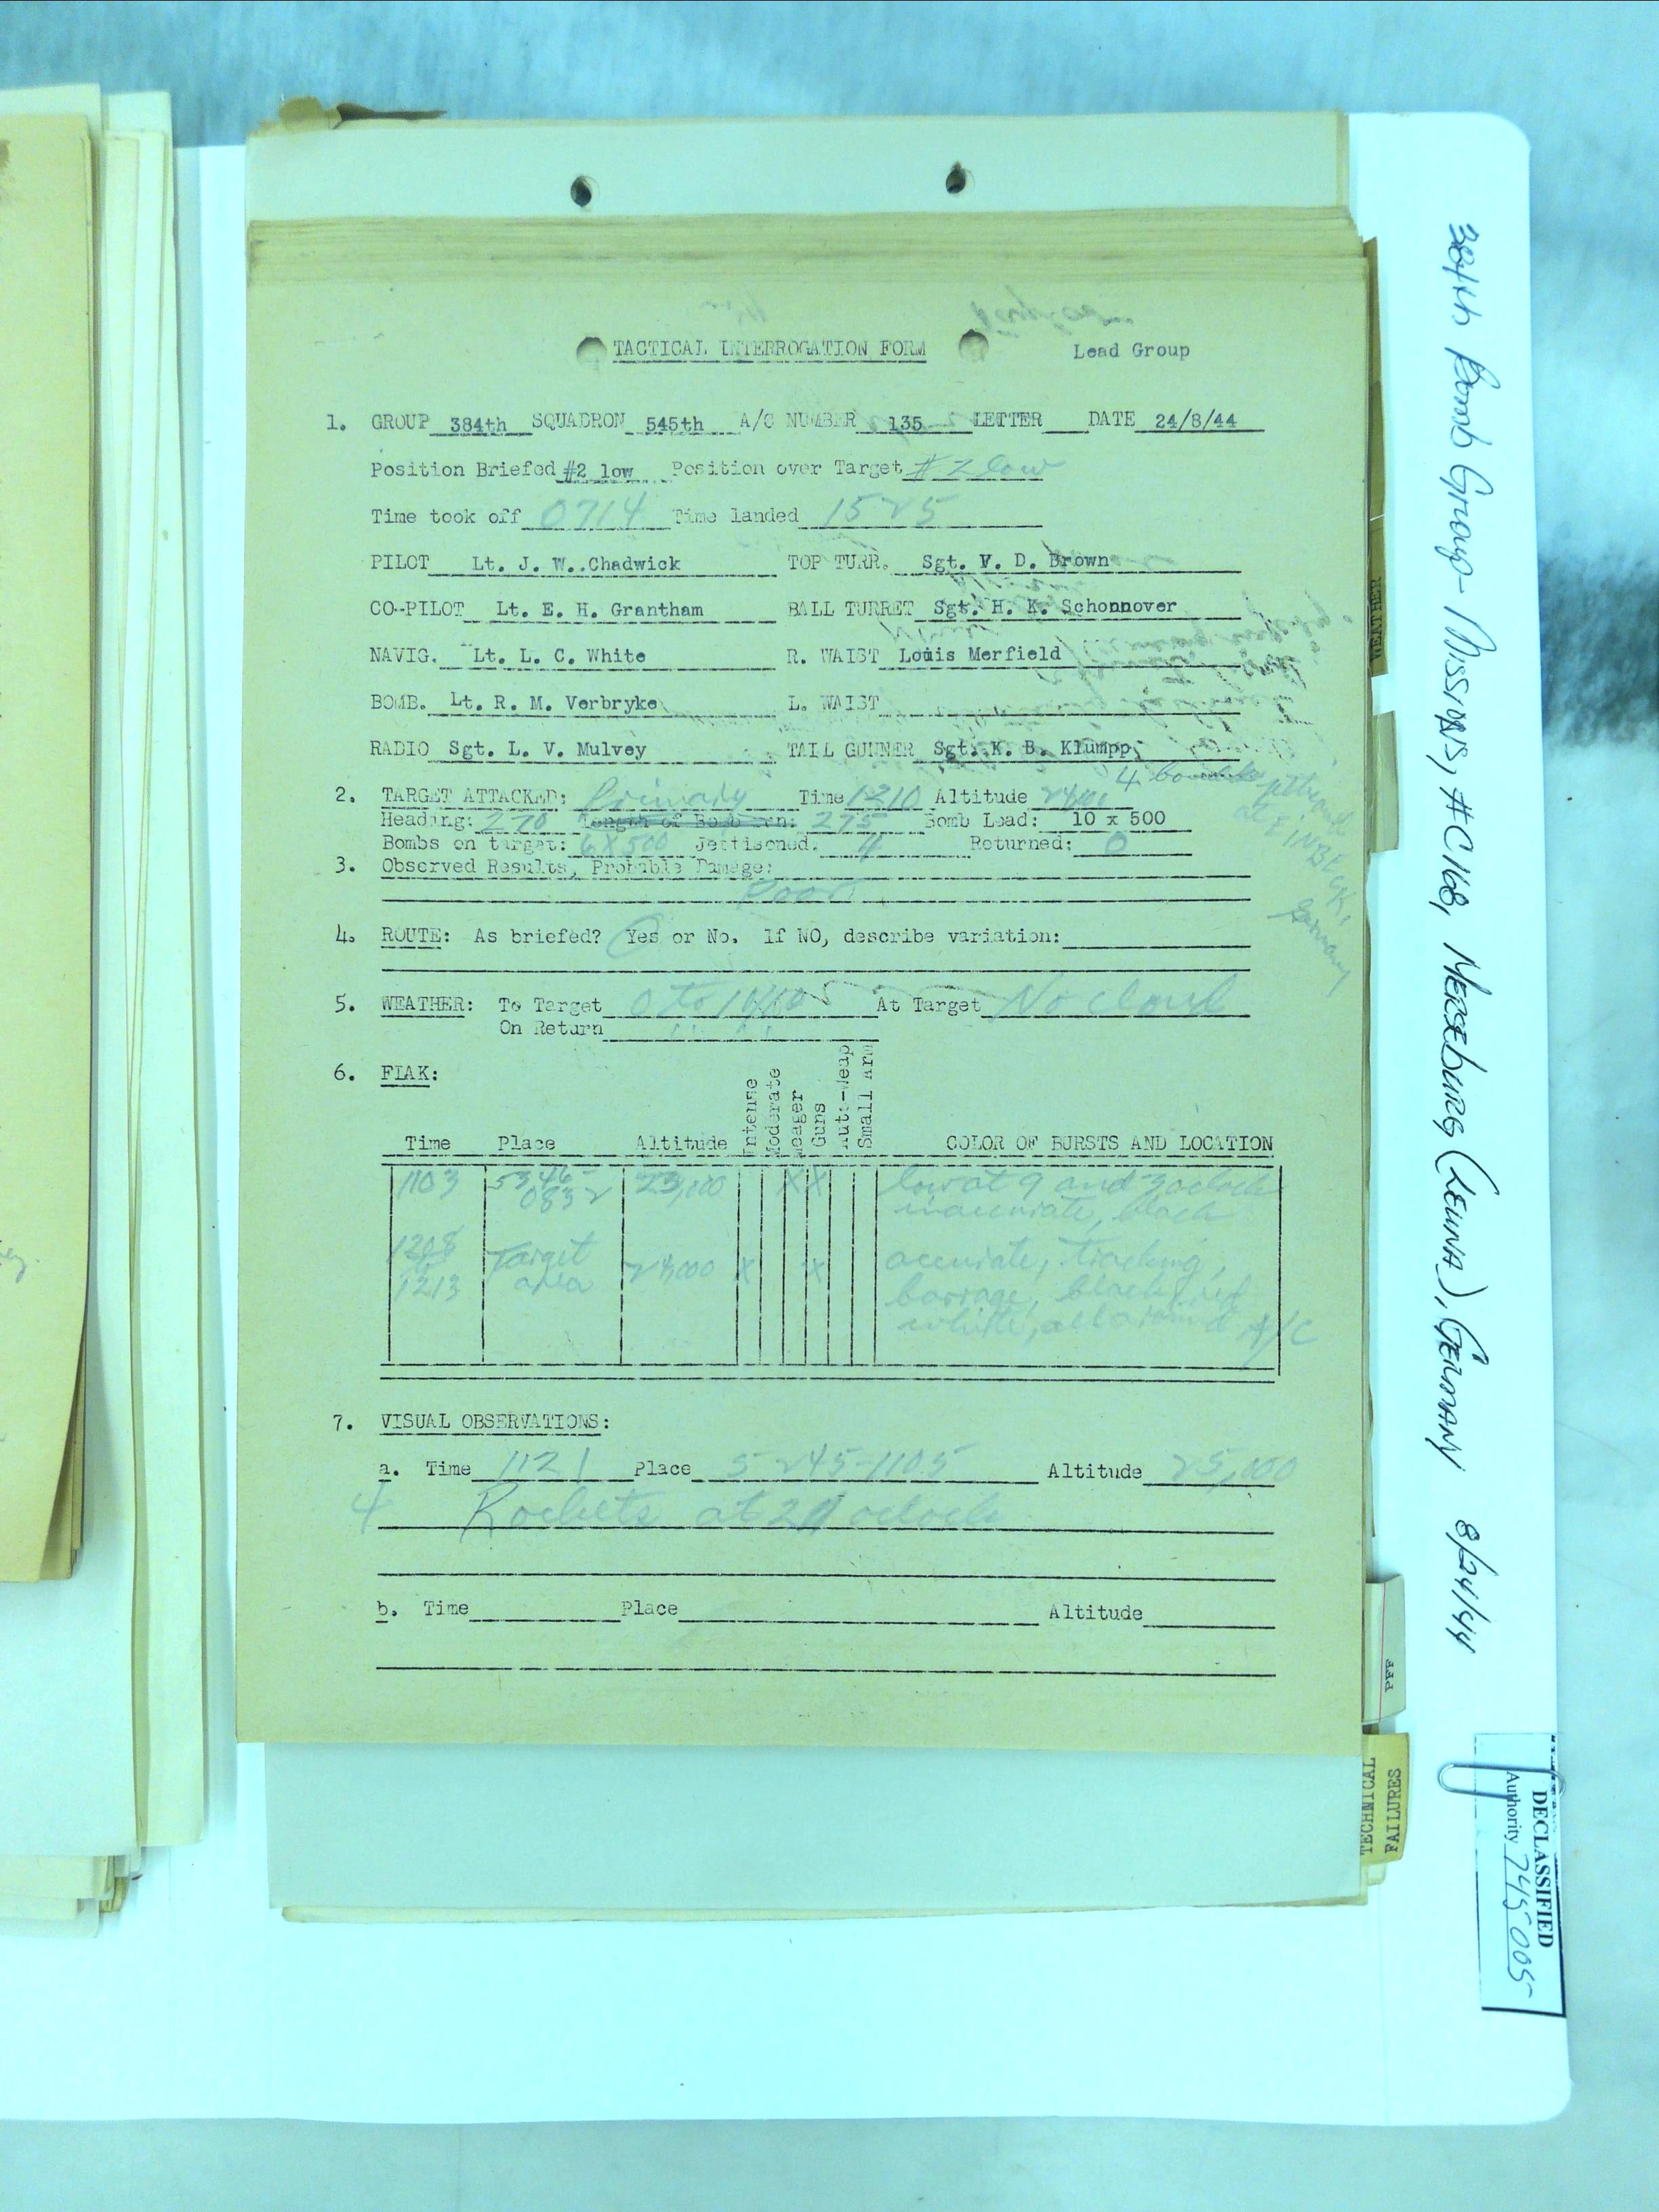 TACTICAL INTERROGATION FORM Lead Group
1. GROUP 384th SQUADRON 545th A/C NUMBER 135 LETTER DATE 24/8/44
Position Briefed #2 low Position over Target #2 low
Time took off 0714 Time landed 1525
PILOT Lt. J. W. Chadwick TOP TURR. Sgt. V. D. Brown
CO-PILOT Lt. E. H. Grantham BALL TURRET Sgt. H. K. Schonnover
NAVIG. Lt. L. C. White R. WAIST Louis Merfield
BOMB. Lt. R. M. Verbryke L. WAIST
RADIO Sgt. L. V. Mulvey TAIL GUNNER Sgt. K. B. Klumpp
4 bombs jettisoned
at EINBECK,
Germany
2. TARGET ATTACKED: Primary Time 1210 Altitude
Heading: 270 Length of Bomb run: 275 Bomb Load: 10 x 500
Bombs on target: 6X500 Jettisoned: 4 Returned: 0
3. Observed Results, Probable Damage:
Poor
4. ROUTE: As briefed? Yes or No. If NO, describe variation:
5. WEATHER: To Target 0 to 10/10 At Target No cloud
On Return
6. FLAK:
Intense
Moderate
Meager
Guns
Auto-Weap
Small Arm
Time Place Altitude COLOR OF BURSTS AND LOCATION
1103 5346- 23,000 X X low at 9 and 3 oclock
0832 inaccurate, black
1208 Target 24,000 X X accurate, tracking,
1213 area barrage, black, red
white, all around A/C
7. VISUAL OBSERVATIONS:
a. Time 1121 Place 5245-1105 Altitude 25,000
4 Rockets at oclock
b. Time Place Altitude
384th Bomb Group- Missions, #C168, MERSEBURG (LEUNA), GERMANY 8/24/44
WEATHER
PFF
TECHNICAL
FAILURES
DECLASSIFIED
Authority 745005